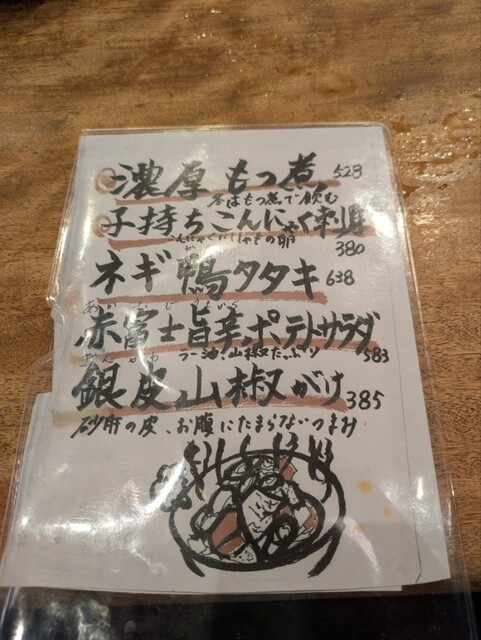 濃厚もつ煮 528
冬はもつ煮で飲む
子持ちこんにゃく刺身
380
ネギ鴨タタキ 638
あかふじうまから
赤富士旨辛ポテトサラダ
ラー油!山椒たっぷり 583
ぎんかわ
銀皮山椒がけ 385
砂肝の皮、お腹にたまらないつまみ